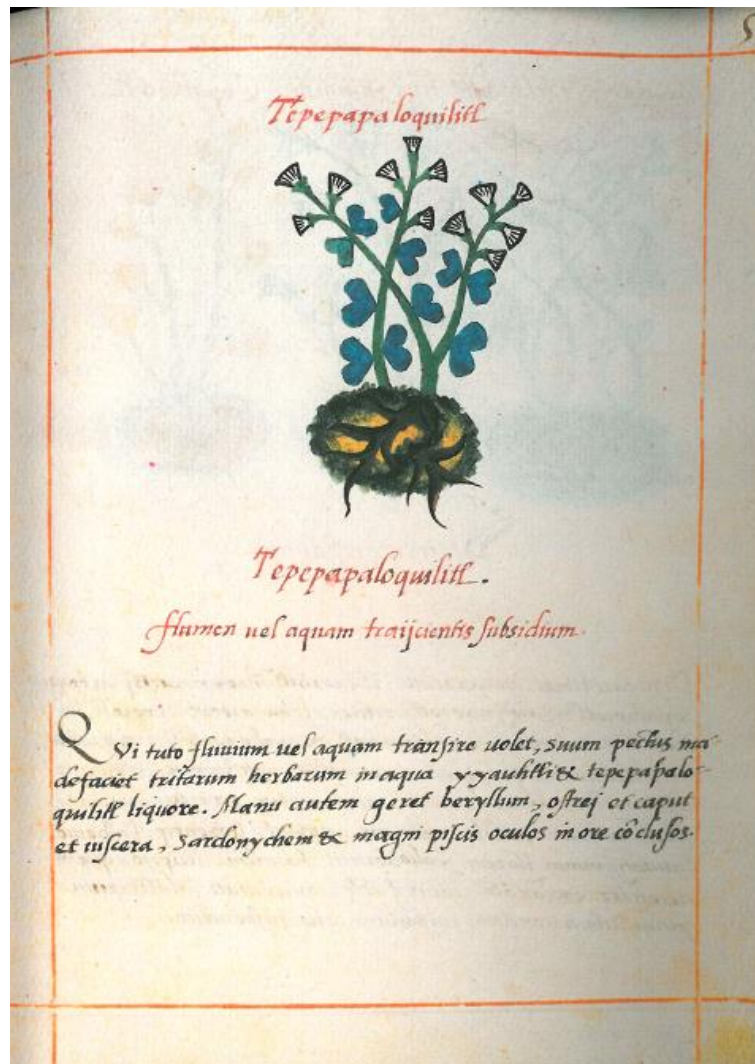 Tepepapaloquilitl
Tepepapaloquilitl.
flumen uel aquam traijcientis subsidium.
QVi tuto fluuium uel aquam transire uolet, suum pectus ma-
defaciet tritarum herbarum in aqua yyauhtli & tepepapalo-
quilitl liquore. Manu autem geret beryllum, ostrej et caput
et uiscera, Sardonychem & magni piscis oculos in ore cõclusos.